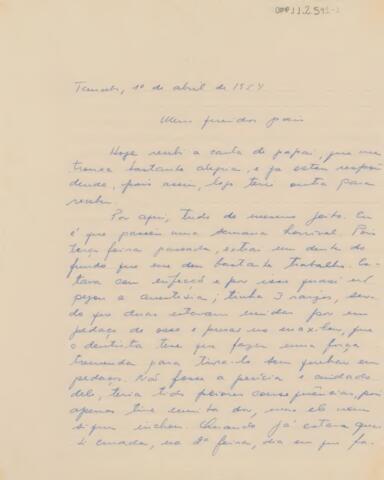 11.2.591-1
1º de abril de 1954
Meus queridos pais
Hoje recebi a carta de papai, que me
trouxe bastante alegria, e já estou respon
dendo, pois assim, logo terei outra para
receber.
Por aqui, tudo do mesmo jeito. Eu
é que passei uma semana horrível. Pois
terça feira passada, extraí um dente do
fundo que me deu bastante trabalho. Es-
tava com infecção e por isso quasi não
pegou a anestesia; tinha 3 raizes, sen-
do que duas estavam unidas por um
pedaço de osso e presas no maxilar, que
o dentista teve que fazer uma força
tremenda para tirar sem quebrar em
pedaços. Não fosse a perícia e cuidado
dele, teria tido piores consequências, pois
apenas tive muita dor, mas ele nem
siquer inchou. Quando já estava qua
si curada, na 2ª feira, dia em que fa-